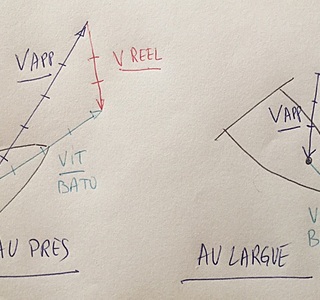 VAPP
V REEL
VIT
BATO
AU PRES
VAPP
V
B
AU LARGUE